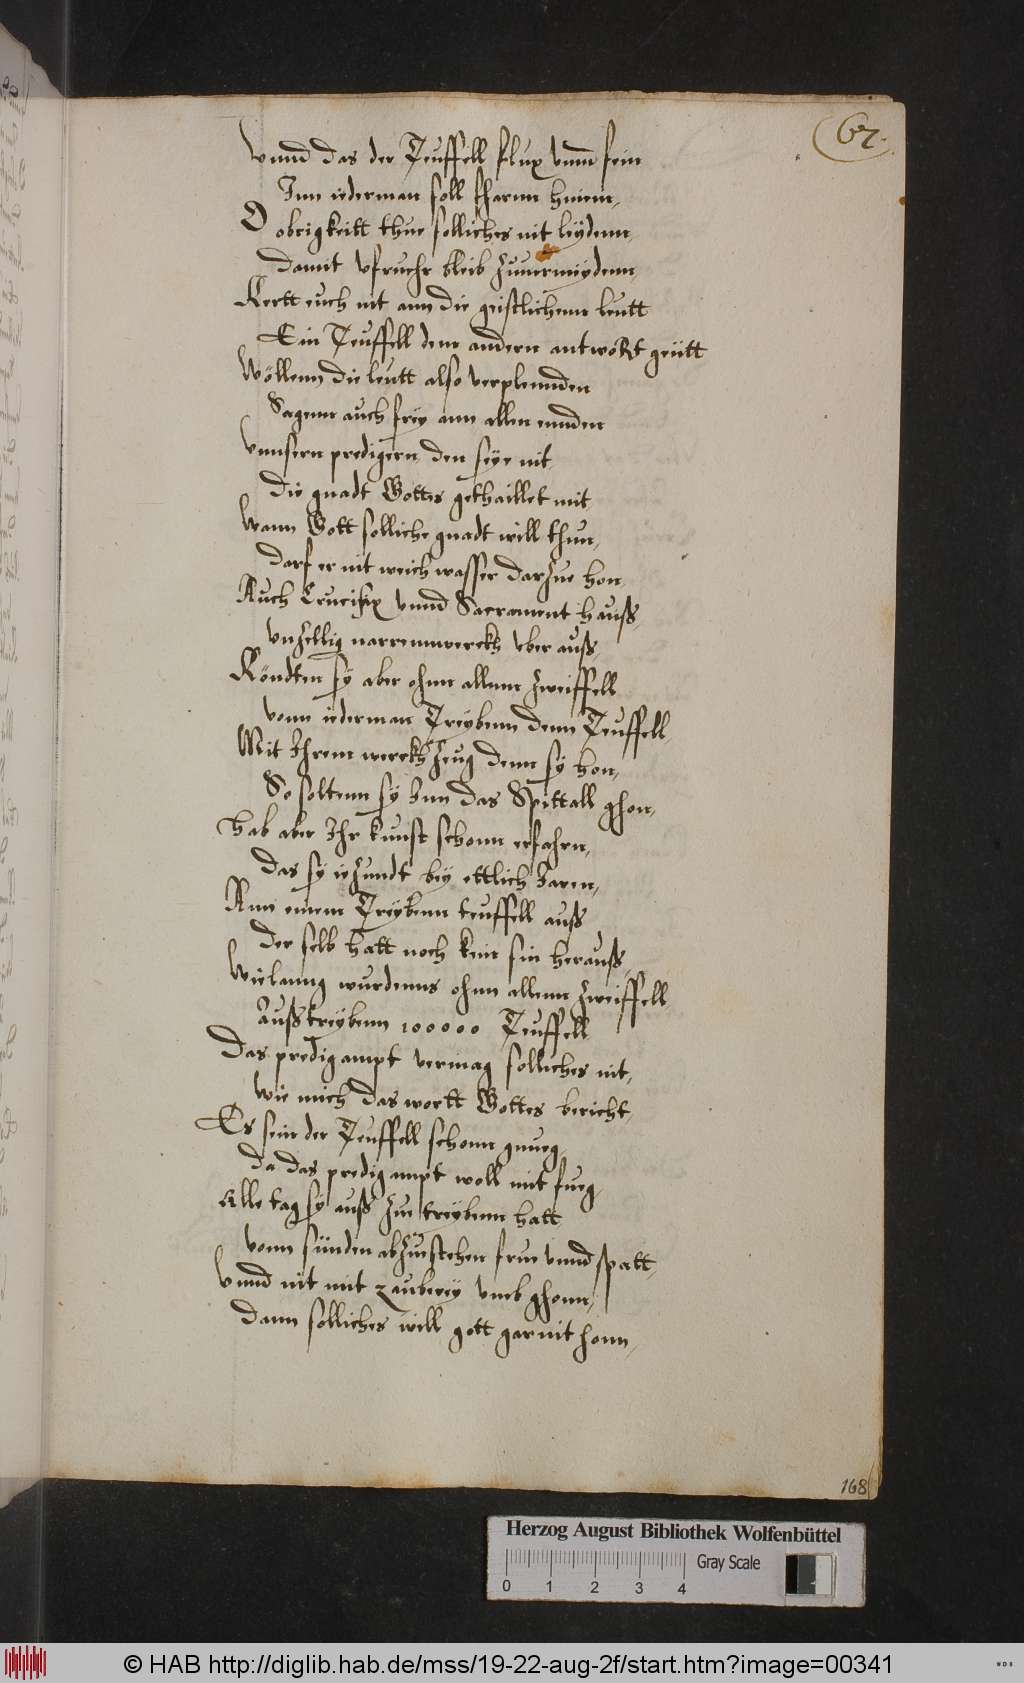 62.
Vnnd das der Teuffell flux vnnd fein
Inn iederman soll fharnn hinein,
O obrigkeitt thue solliches nit leydenn
damit vfruehr bleib zuuermeydenn,
Kertt euch nit ann die geistlichenn leutt
Ein Teuffell dem andern antwortt geütt
Wöllenn die leutt also verplennden
Sagenn auch frey ann allen ennden
Vnnsern predigern den seye nit
die gnadt Gottes gethaillet mit
Wann Gott solliche gnadt will thun,
darf er nit weich wasser darzue hon
Auch Crucifix vnnd Sacrament hauß,
vnzellig narrennwerckh vber auß
Köndten sy aber ohnn allenn zweiffell
vonn iederman Treybenn denn Teuffell,
Mit Ihrem werckhzeug denn sy hon,
So soltenn sy Inn das Spittall ghon,
Hab aber Ihr kunst schonn erfahrn,
das sy iezundt bey ettlich Jaren,
Ann einem Treybenn teuffell auß
der selb hatt noch kein sin herauß,
Wielanng wurdenns ohnn allenn zweiffell
Außtreybenn 100000 Teuffell
Das predigampt vermag solliches nit,
wie mich das wortt Gottes bericht,
Es sein der Teuffell schonn gnueg,
da das predigampt woll mit fueg,
Alle tag sy auß zue treybenn hatt
vonn sünden abzustehen frue vnnd spatt,
Vnnd nit mit zauberey vmb ghonn,
dann solliches will gott gar nit honn,
168
Herzog August Bibliothek Wolfenbüttel
Gray Scale
0 1 2 3 4
© HAB http://diglib.hab.de/mss/19-22-aug-2f/start.htm?image=00341